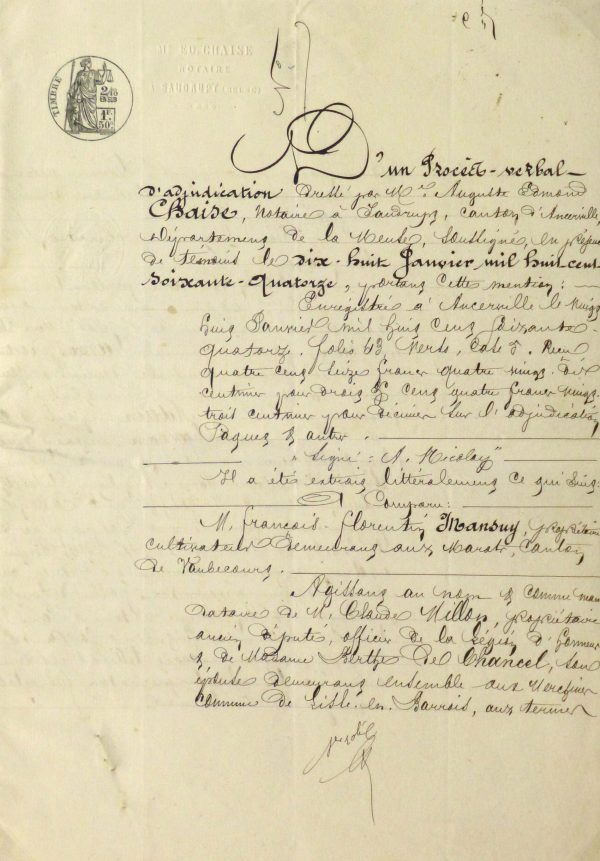 TIMBRE
2/10
EN SUS
1F.
50c.
Me ED. CHAISE
NOTAIRE
A SAUDRUPT (MEUSE)
D'un Procès-verbal
d'adjudication dressé par Me Auguste Edmond
Chaise, Notaire à Saudrupt, canton d'Ancerville,
Département de la Meuse, soussigné, en présence
de témoins le dix-huit Janvier mil huit cent
soixante-quatorze, portant cette mention:
Enregistré à Ancerville le vingt
huit Janvier mil huit cent soixante
quatorze. folio 43, Verso, Case 7. Reçu
quatre cent seize francs quatre vingt dix
centimes pour droit & cent quatre francs vingt
trois centimes pour décimes sur l'adjudication,
& autres.
"Signé: A. Nicolay"
Il a été extrait littéralement ce qui suit:
A Comparu:
M. François-Florentin Mansuy, propriétaire
cultivateur demeurant aux Marats, Canton
de Vaubecourt.
Agissant au nom & comme man
dataire de M. Claude Millon, propriétaire
ancien député, officier de la Légion d'honneur
& de Madame Berthe de Chancel, son
épouse demeurant ensemble aux Merchines
commune de Lisle-en-Barrois, aux termes